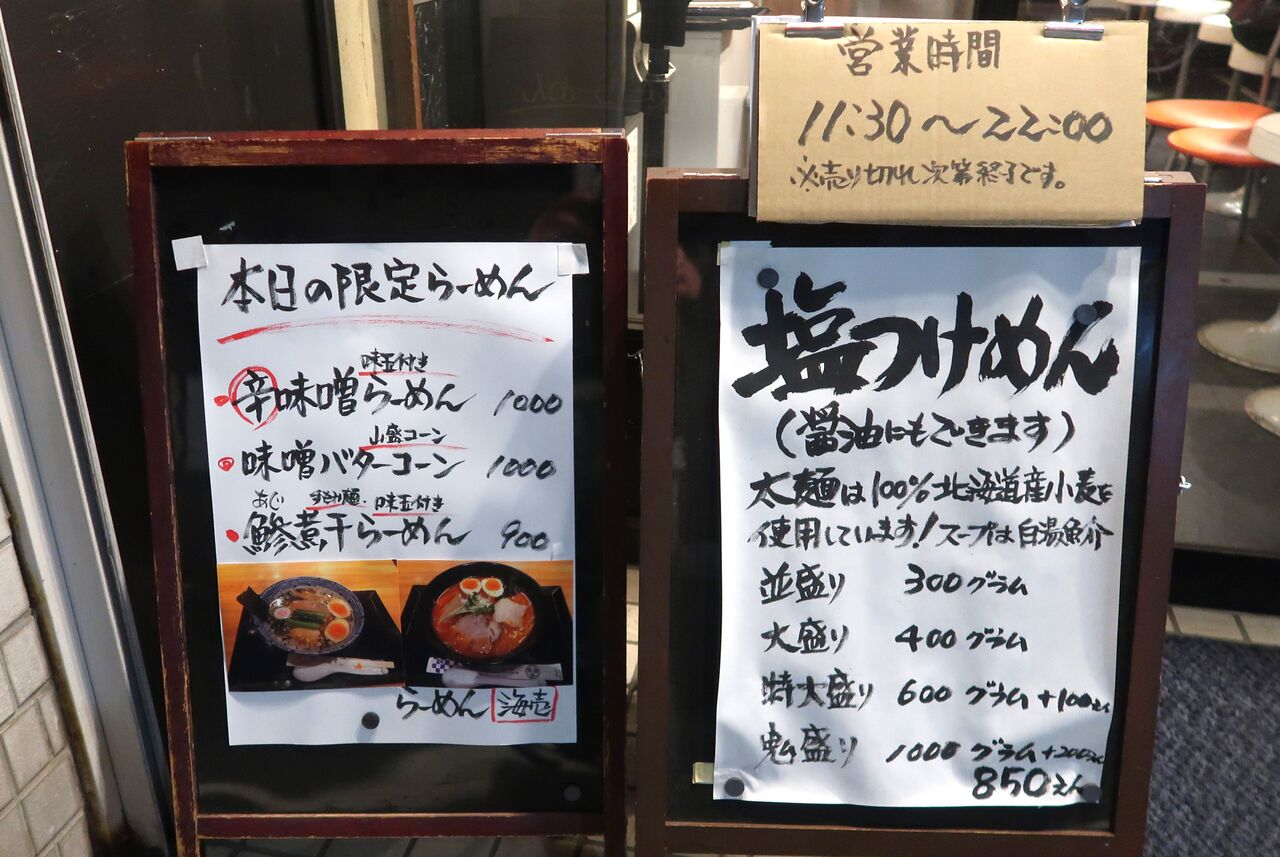 本日の限定らーめん
味玉付き
辛味噌らーめん 1000
山盛コーン
味噌バターコーン 1000
あじ 味玉付き
鯵煮干らーめん 900
らーめん 海壱
営業時間
11:30〜22:00
※売り切れ次第終了です。
塩つけめん
(醤油にもできます)
太麺は100%北海道産小麦を
使用しています！スープは白湯魚介
並盛り 300グラム
大盛り 400グラム
特大盛り 600グラム+100えん
鬼盛り 1000グラム+200えん
850えん